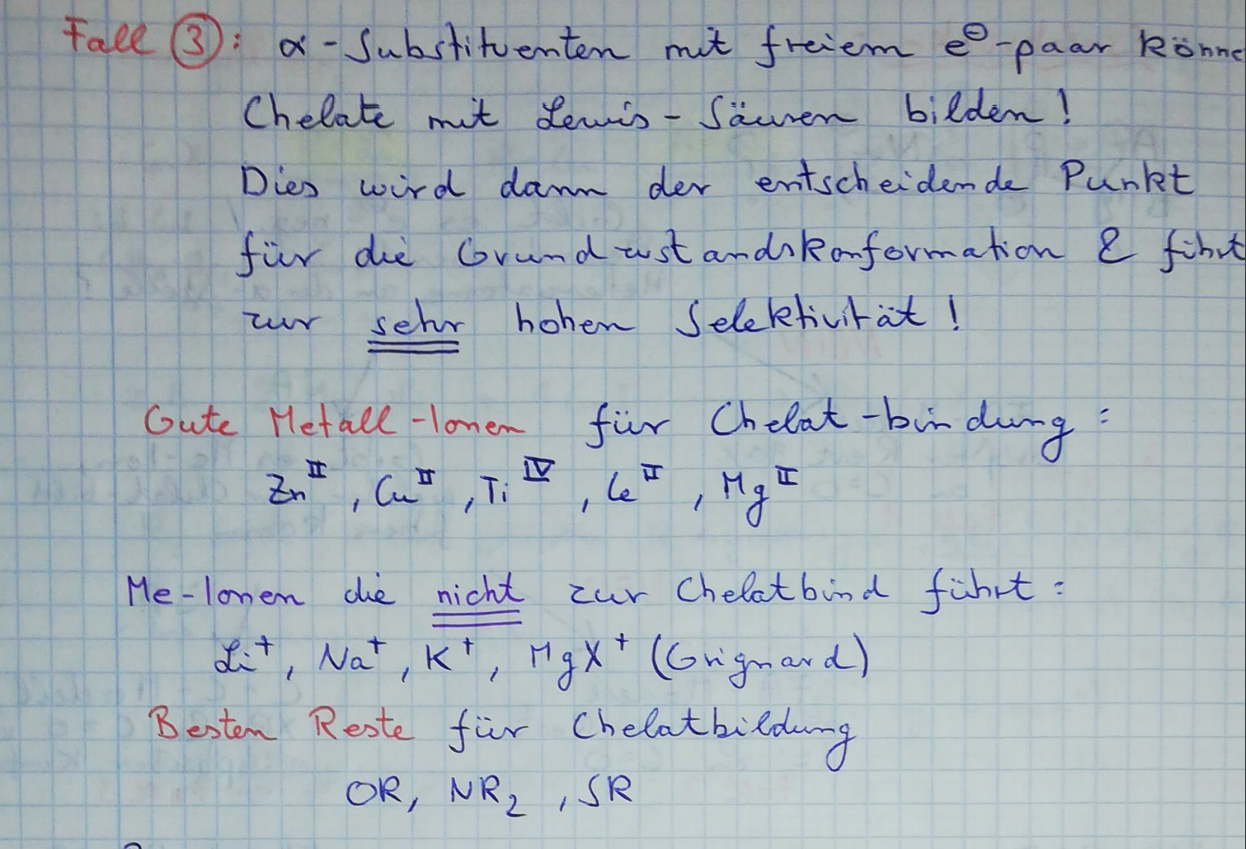 Fall ③: α-Substituenten mit freiem e⊖-paar könne
Chelate mit Lewis-Säuren bilden!
Dies wird dann der entscheidende Punkt
für die Grundzustandskonformation & führt
zur sehr hohen Selektivität!
Gute Metall-Ionen für Chelat-bindung:
Zn^II, Cu^II, Ti^IV, Ce^II, Mg^II
Me-Ionen die nicht zur Chelatbind führt:
Li⁺, Na⁺, K⁺, MgX⁺ (Grignard)
Besten Reste für Chelatbildung
OR, NR₂, SR